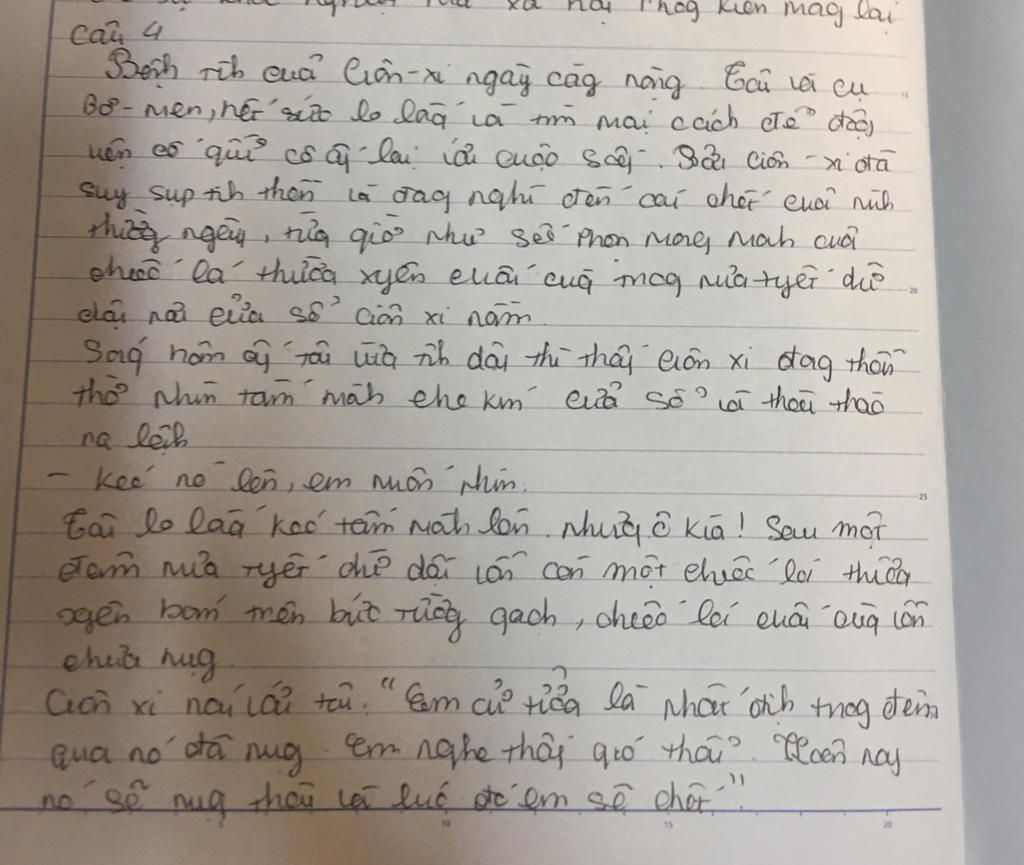 xã hội Thog kiên mag lại
Câu 4
Bệnh tih cuả Giôn-xi ngaỳ càg nặng. Tôi và cụ
Bơ-men, hết sức lo lắg và tìm mọi cách để độg
viên cô qủi cô ấy lại với cuộc sốg. Bởi Giôn-xi đã
suy sụp tih thần và đag nghĩ đến cái chết cuả mìh
thườg ngày, từg giờ như số phận mong mah cuả
chiếc lá thườg xuyên cuối cùg trog mưa tyết dữ
dội nơi cửa sổ Giôn xi nằm.
Ság hôm ấy tôi vừa tỉh dậy thì thấy Giôn xi đag thẫn
thờ nhìn tấm màh che kín cửa sổ và thều thào
ra lệh
- Kéo nó lên, em muốn nhìn.
Tôi lo lắg kéo tấm màh lên. Nhưg ô kìa! Sau một
đêm mưa tyết dữ dội vẫn còn một chiếc lá thườg
xyên bám trên bức tườg gạch, chiếc lá cuối cùg vẫn
chưa rụg.
Giôn xi nói với tôi. "Em cứ tưởg là nhất địh trog đêm
qua nó đã rụg. Em nghe thấy gió thổi? Hôm nay
nó sẽ rụg thôi và lúc đó em sẽ chết".